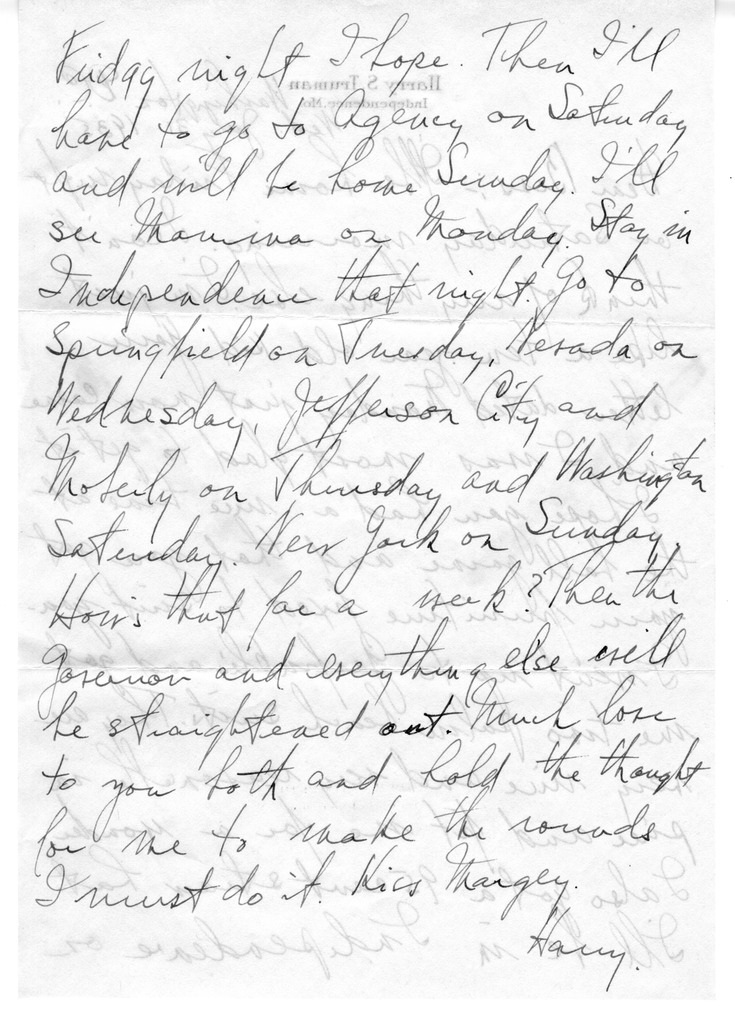 Friday night I hope. Then I'll
have to go to Agency on Saturday
and will be home Sunday. I'll
see Mamma on Monday. Stay in
Independence that night. Go to
Springfield on Tuesday, Nevada on
Wednesday, Jefferson City and
Moberly on Thursday and Washington
Saturday. New York on Sunday.
How's that for a week? Then the
Governor and everything else will
be straightened out. Much love
to you both and hold the thought
for me to make the rounds
I must do it. Kiss Margey.
Harry.
Harry S Truman
Independence, Mo.